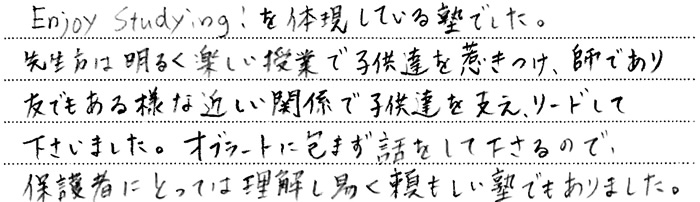 Enjoy Studying!を体現している塾でした。
先生方は明るく楽しい授業で子供達を惹きつけ、師であり
友でもある様な近しい関係で子供達を支え、リードして
下さいました。オブラートに包まず話をして下さるので、
保護者にとっては理解し易く頼もしい塾でもありました。